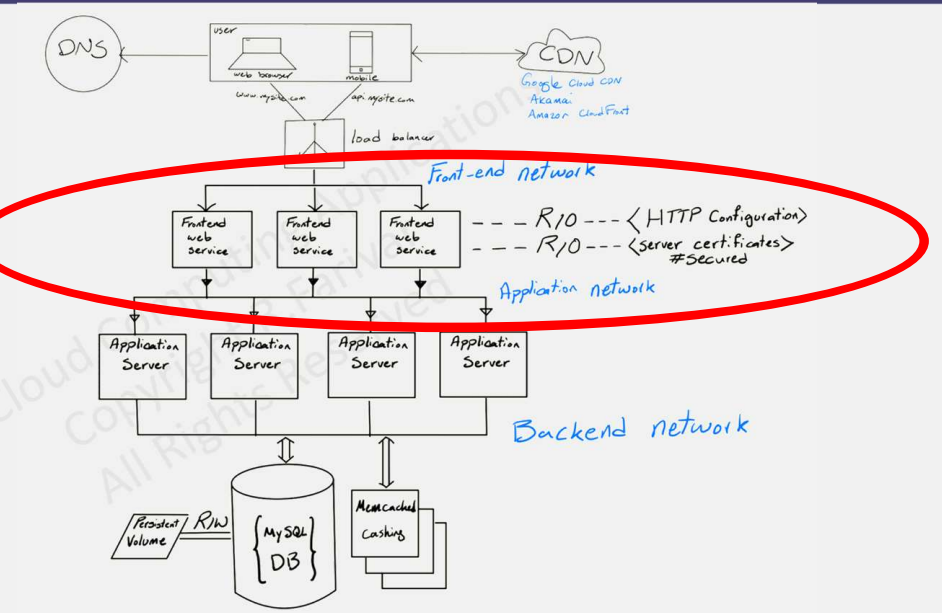 user
DNS
CDN
web browser
mobile
Google Cloud CDN
Akamai
Amazon CloudFront
www.mysite.com
api.mysite.com
load balancer
Front-end network
Frontend
web
service
Frontend
web
service
Frontend
web
service
--- R/O --- <HTTP Configuration>
--- R/O --- <server certificates>
#secured
Application network
Application
Server
Application
Server
Application
Server
Application
Server
Backend network
Persistent
Volume
R/W
{MySQL
DB}
Memcached
Cashing
Cloud Computing Applications
Copyright Farivar
All Rights Reserved